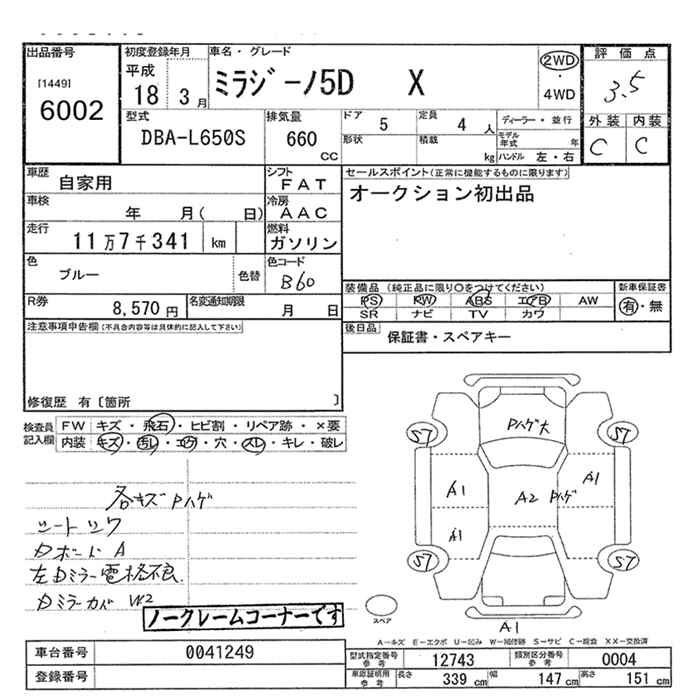 出品番号 初度登録年月 車名・グレード 評価点
[1449] 平成 ミラジーノ5D X 2WD ・ 4WD 3.5
6002 18 3月
外装 内装
C C
型式 排気量 ドア 5 定員 4 人 ディーラー・並行
DBA-L650S 660 cc 形状 積載 kg モデル年式 年
ハンドル 左・右
車歴 自家用 シフト FAT セールスポイント(正常に機能するものに限ります)
車検 年 月( 日) 冷房 AAC オークション初出品
走行 11万7千341 km 燃料 ガソリン
色 ブルー 色替 色コード B60
装備品 (純正品に限り○をつけてください) 新車保証書
PS PW ABS エアB AW 有・無
SR ナビ TV カワ
R券 8,570円 名変通知期限 月 日
後日品 保証書・スペアキー
注意事項申告欄(不具合内容等は具体的に記入して下さい)
修復歴 有〔箇所 〕
検査員記入欄 FW キズ・飛石・ヒビ割・リペア跡・×要
内装 キズ・汚レ・エウ・穴・スレ・キレ・破レ
各キズ Pハゲ
シートシワ
DボードA
左Dミラー電格不良
Dミラーカバ W2
ノークレームコーナーです
Pハゲ大
S7 S7
A1 A2 Pハゲ A1
A1
S7 S7
スペア A1
A-キズ E-エクボ U-凹み W-補修跡 S-サビ C-腐食 XX-交換済
車台番号 0041249
登録番号
型式指定番号 参考 12743 類別区分番号 参考 0004
車庫証明用 参考 長さ 339 cm 幅 147 cm 高さ 151 cm